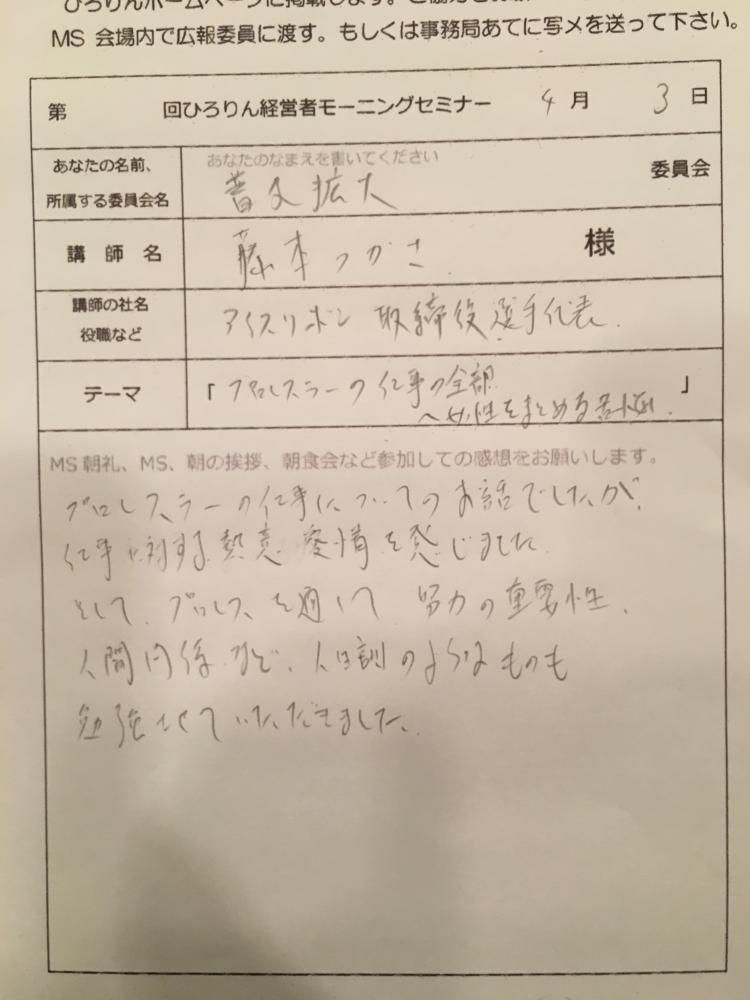 ひろりんホームページに掲載します。ご協力をお願い
MS 会場内で広報委員に渡す。もしくは事務局あてに写メを送って下さい。
第 回ひろりん経営者モーニングセミナー 4月 3日
あなたの名前、
所属する委員会名
あなたのなまえを書いてください
拡大
委員会
講師名
藤本つかさ 様
講師の社名
役職など
アイスリボン 取締役選手代表
テーマ
「プロレスラーの仕事の全部
〜女性をまとめる苦悩」
MS朝礼、MS、朝の挨拶、朝食会など参加しての感想をお願いします。
プロレスラーの仕事についてのお話でしたが、
仕事に対する熱意、愛情を感じました。
そして、プロレスを通して 努力の重要性、
人間関係など、人生訓のようなものも
勉強させていただきました。